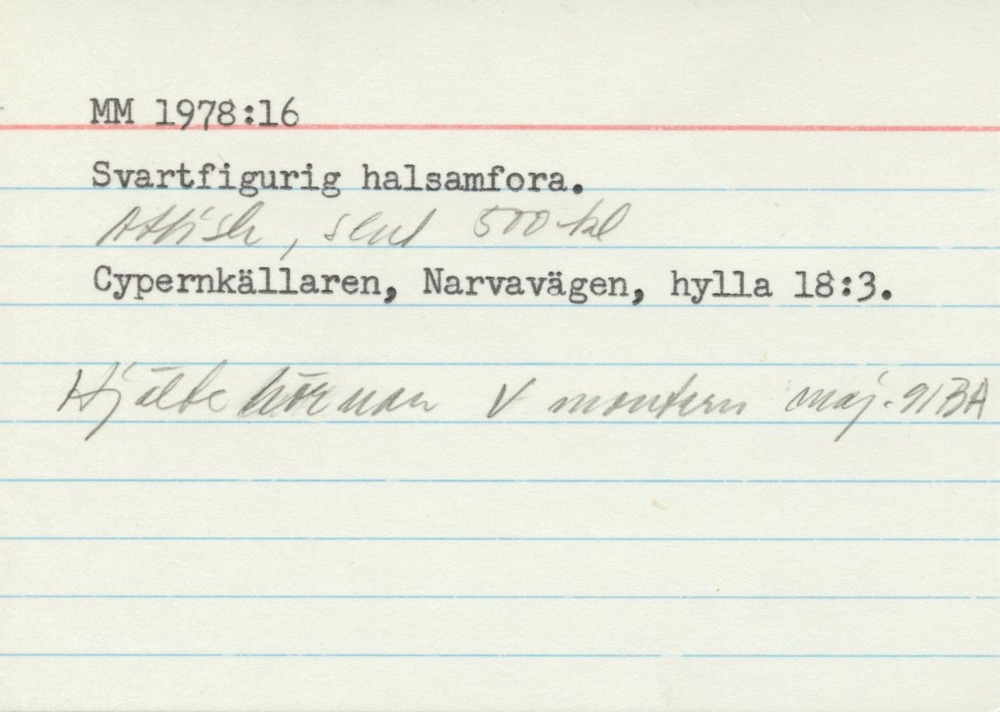 MM 1978:16
Svartfigurig halsamfora.
Attisk, sent 500-tal
Cypernkällaren, Narvavägen, hylla 18:3.
Hjälte hörnan V montern maj-91 BA